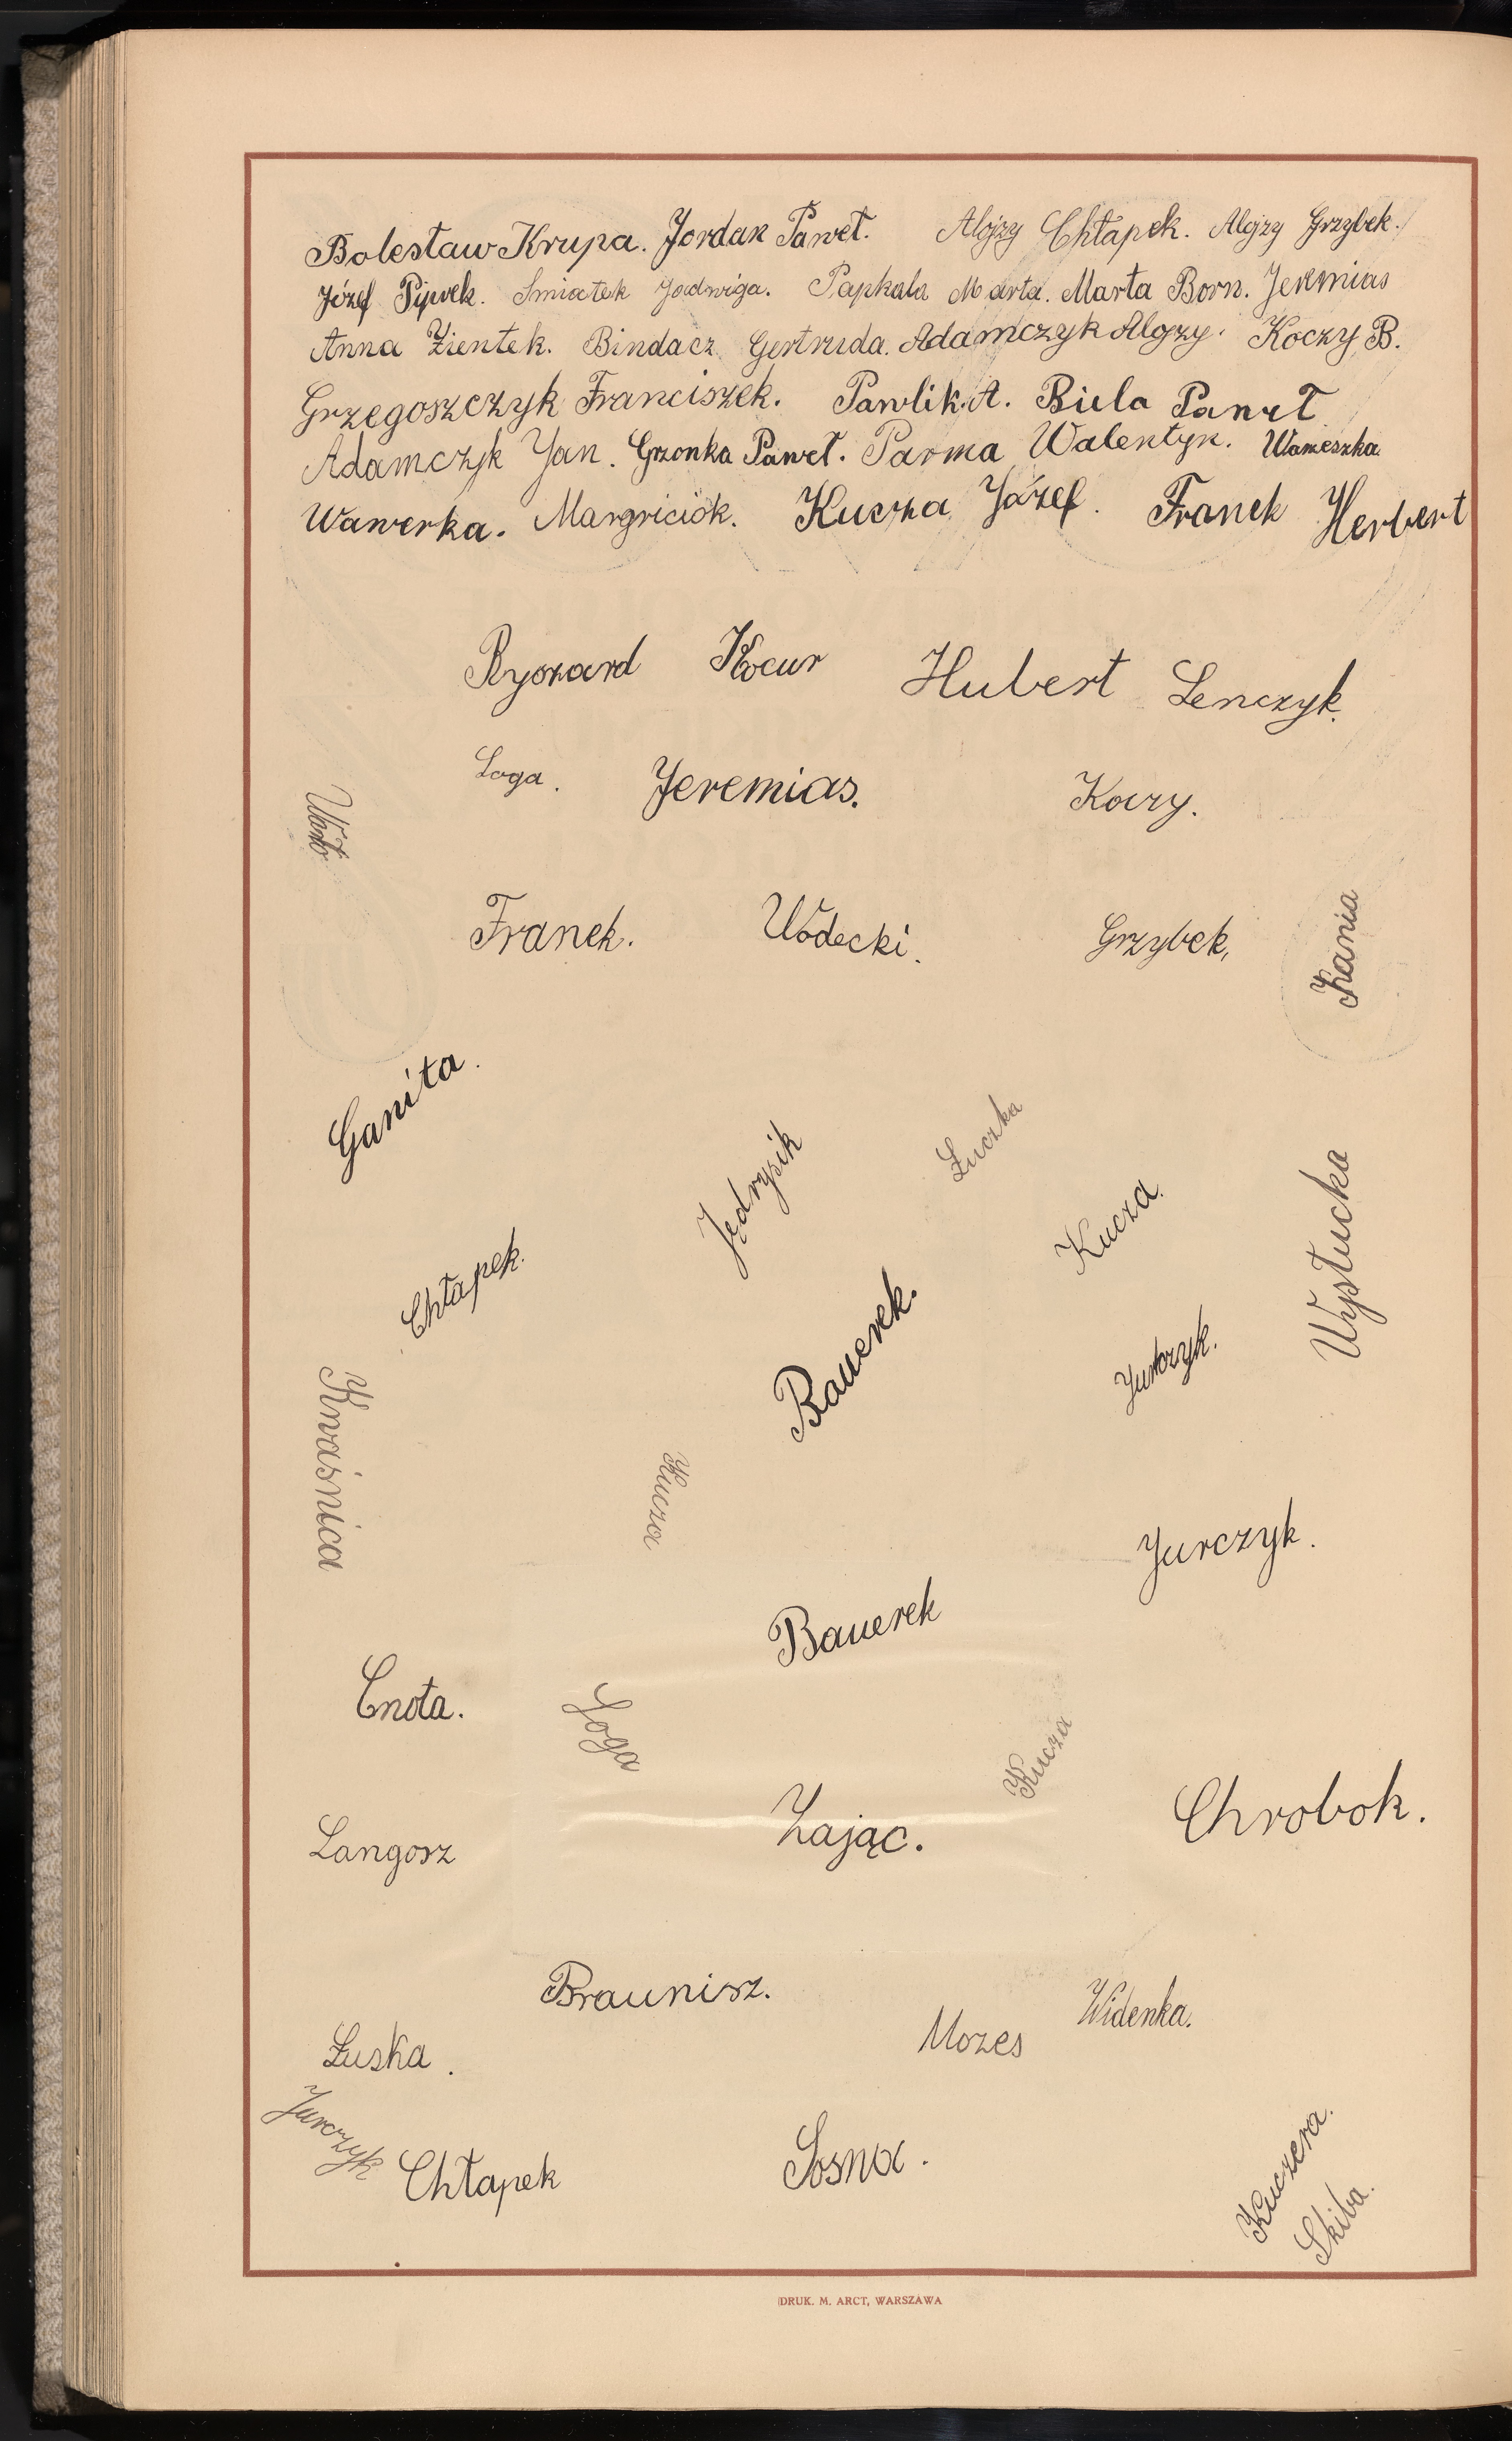 Bolesław Krupa. Jordan Paweł. Alojzy Chłapek. Alojzy Grzybek.
Józef Piprek. Smiatek Jadwiga. Papkala Marta. Marta Born. Jeremias
Anna Zientek. Bindacz Gertruda. Adamczyk Alojzy. Koczy B.
Grzegoszczyk Franciszek. Pawlik A. Biela Paweł
Adamczyk Jan. Grzonka Paweł. Parma Walentyn.
Wawerka. Margiciok. Kucza Józef. Franek Herbert
Ryszard Kocur Hubert Lenczyk.
Loga. Jeremias. Koczy.
Franek. Wodecki. Grzybek,
Kania
Ganita.
Jędrysik
Łuczka
Kucza.
Wystucka
Chłapek.
Bauerek.
Jurczyk.
Kwaśnica
Kucza
Jurczyk.
Bauerek
Cnota.
Loga
Kucza
Zając.
Chrobok.
Langosz
Braunisz.
Mozes
Widenka.
Łuska.
Jurczyk
Chłapek
Sosna.
Kuczera.
Skiba.
DRUK. M. ARCT, WARSZAWA